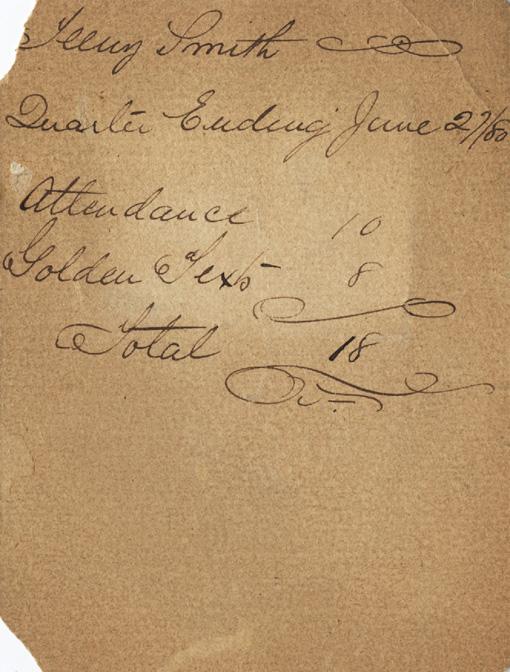 Smith
Quarter Ending June 27/80
Attendance 10
Golden Texts 8
Total 18